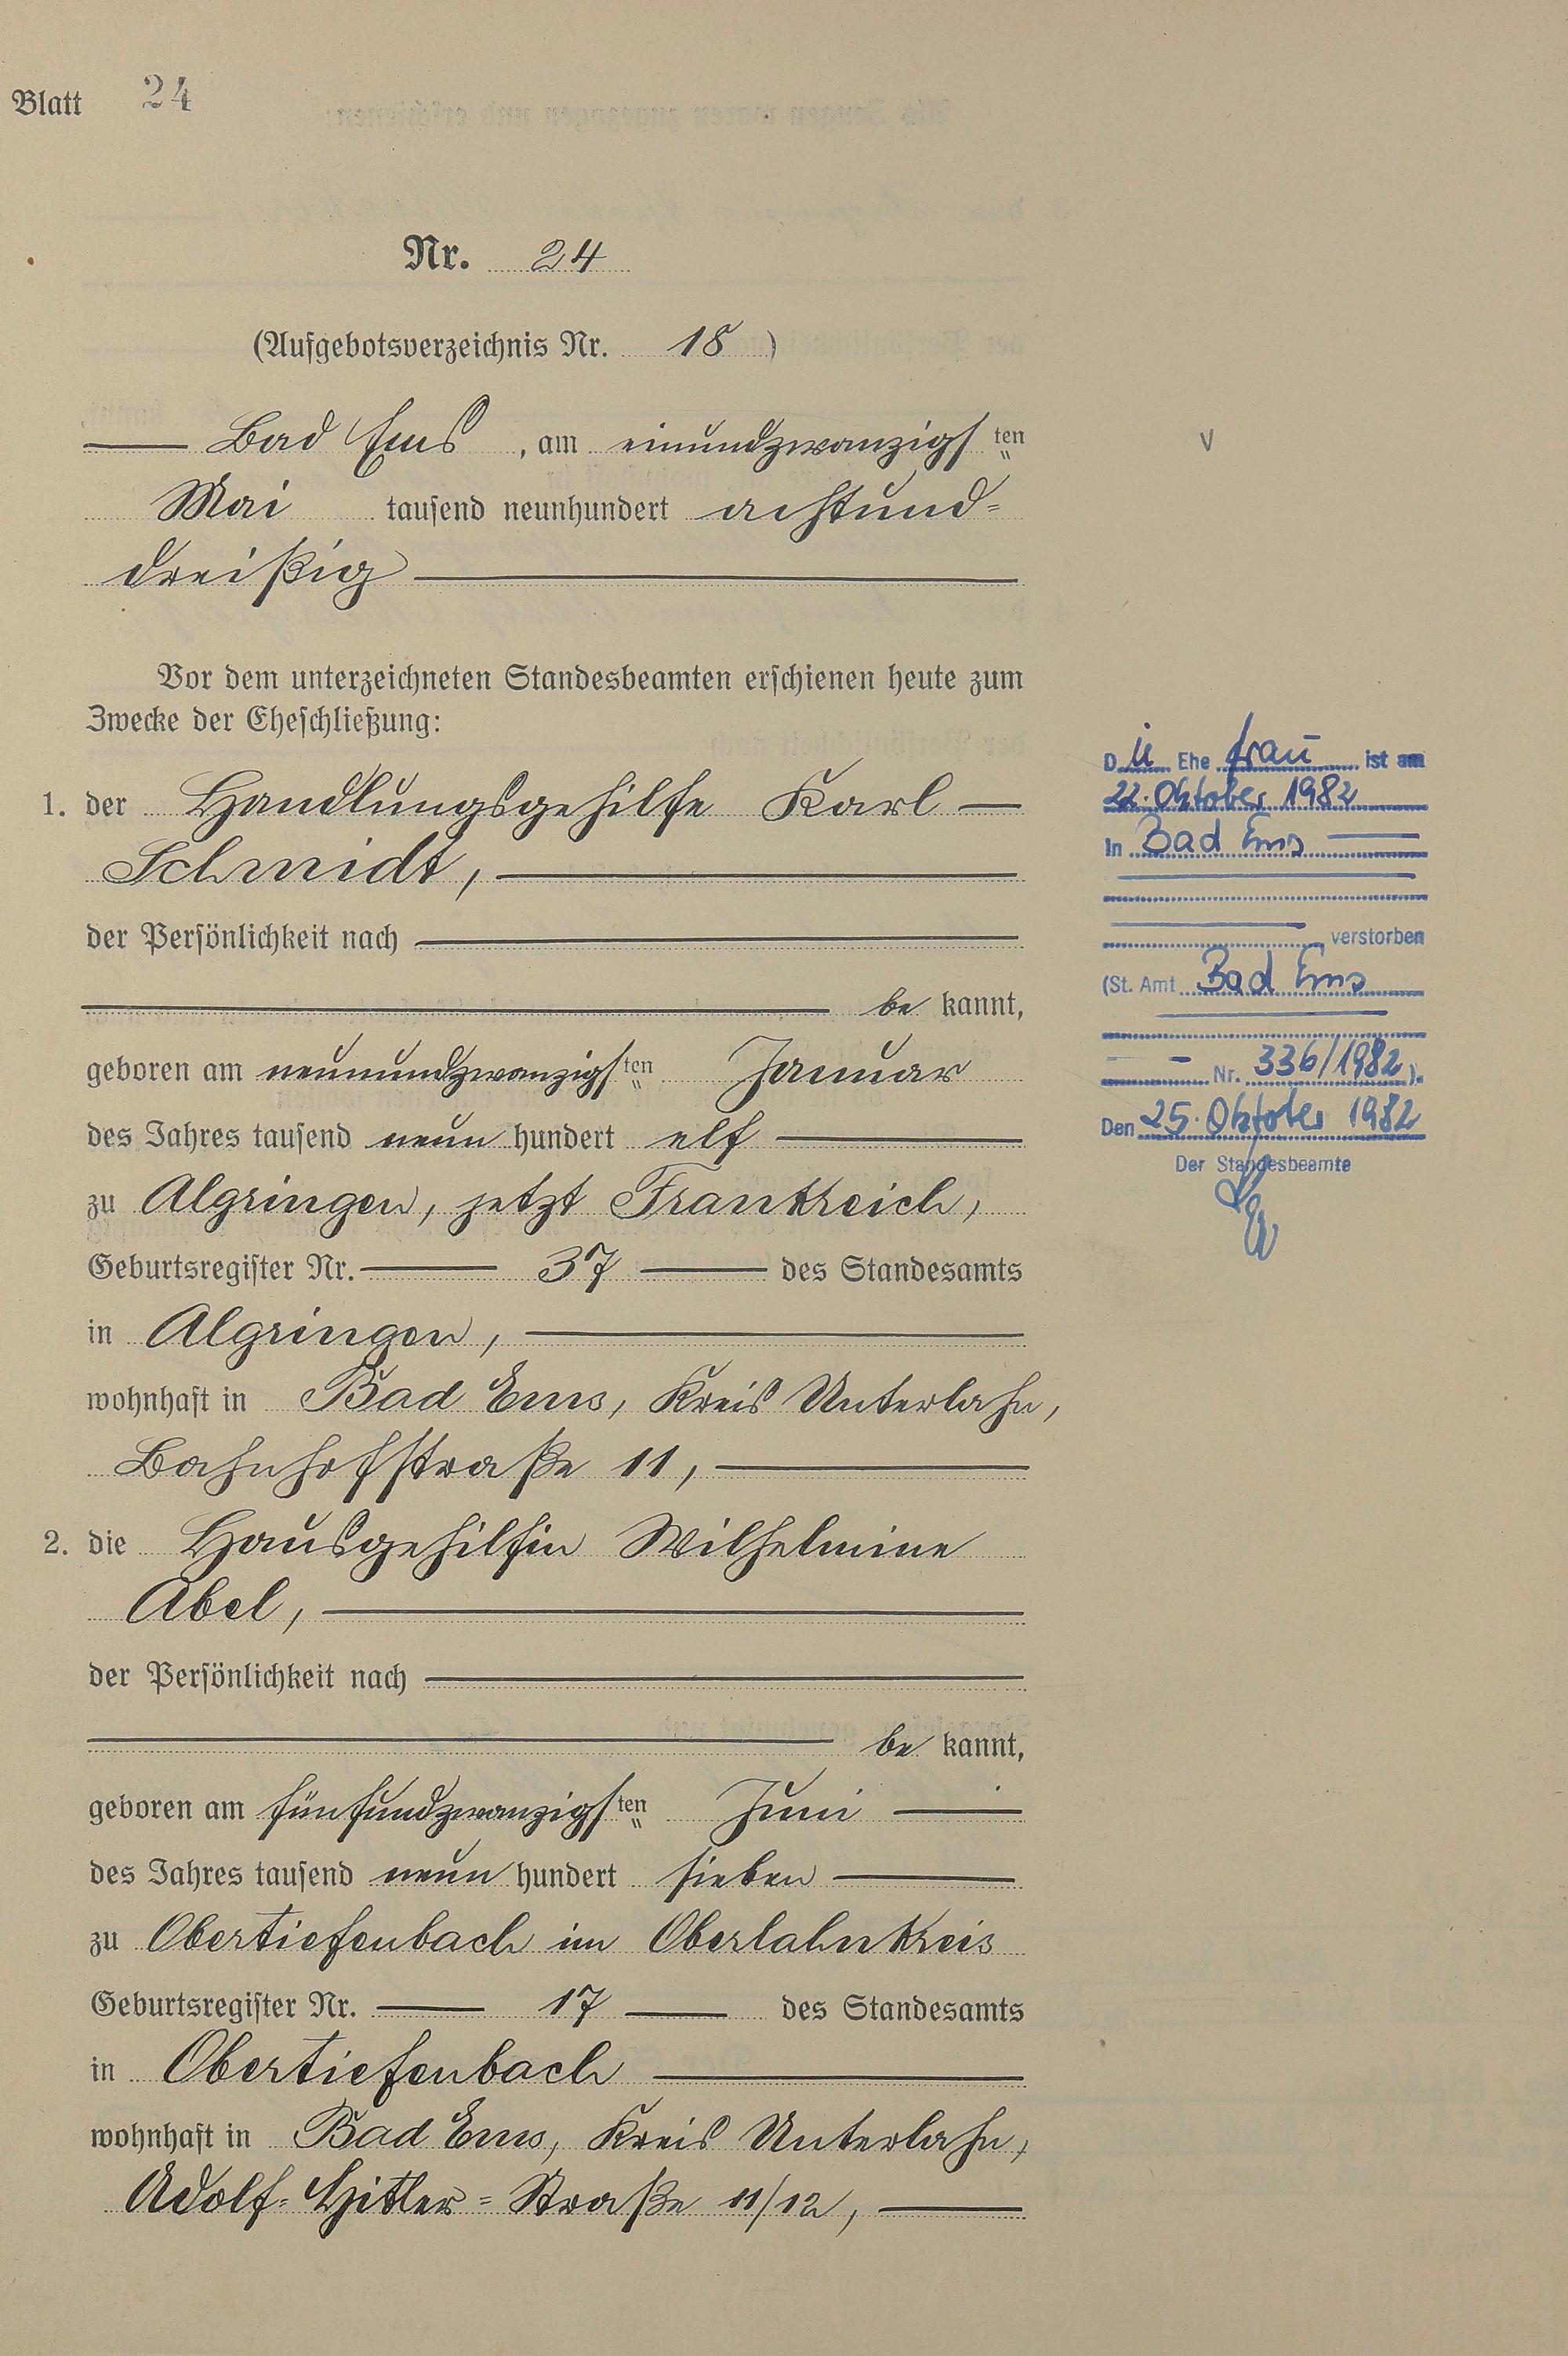 Blatt 24
Nr. 24
(Aufgebotsverzeichnis Nr. 18)
Bad Ems, am einundzwanzigsten
Mai tausend neunhundert achtund=
dreißig
Vor dem unterzeichneten Standesbeamten erschienen heute zum
Zwecke der Eheschließung:
1. der Handlungsgehilfe Karl
Schmidt,
der Persönlichkeit nach
be kannt,
geboren am neunundzwanzigsten Januar
des Jahres tausend neun hundert elf
zu Algringen, jetzt Frankreich,
Geburtsregister Nr. 37 des Standesamts
in Algringen,
wohnhaft in Bad Ems, Kreis Unterlahn,
Bahnhofstraße 11,
2. die Hausgehilfin Wilhelmine
Abel,
der Persönlichkeit nach
be kannt,
geboren am fünfundzwanzigsten Juni
des Jahres tausend neun hundert sieben
zu Obertiefenbach im Oberlahnkreis
Geburtsregister Nr. 17 des Standesamts
in Obertiefenbach
wohnhaft in Bad Ems, Kreis Unterlahn,
Adolf=Hitler=Straße 11/12,
V
Die Ehefrau ist am
22. Oktober 1982
in Bad Ems
, verstorben
(St. Amt Bad Ems
Nr. 336/1982).
Den 25. Oktober 1982
Der Standesbeamte